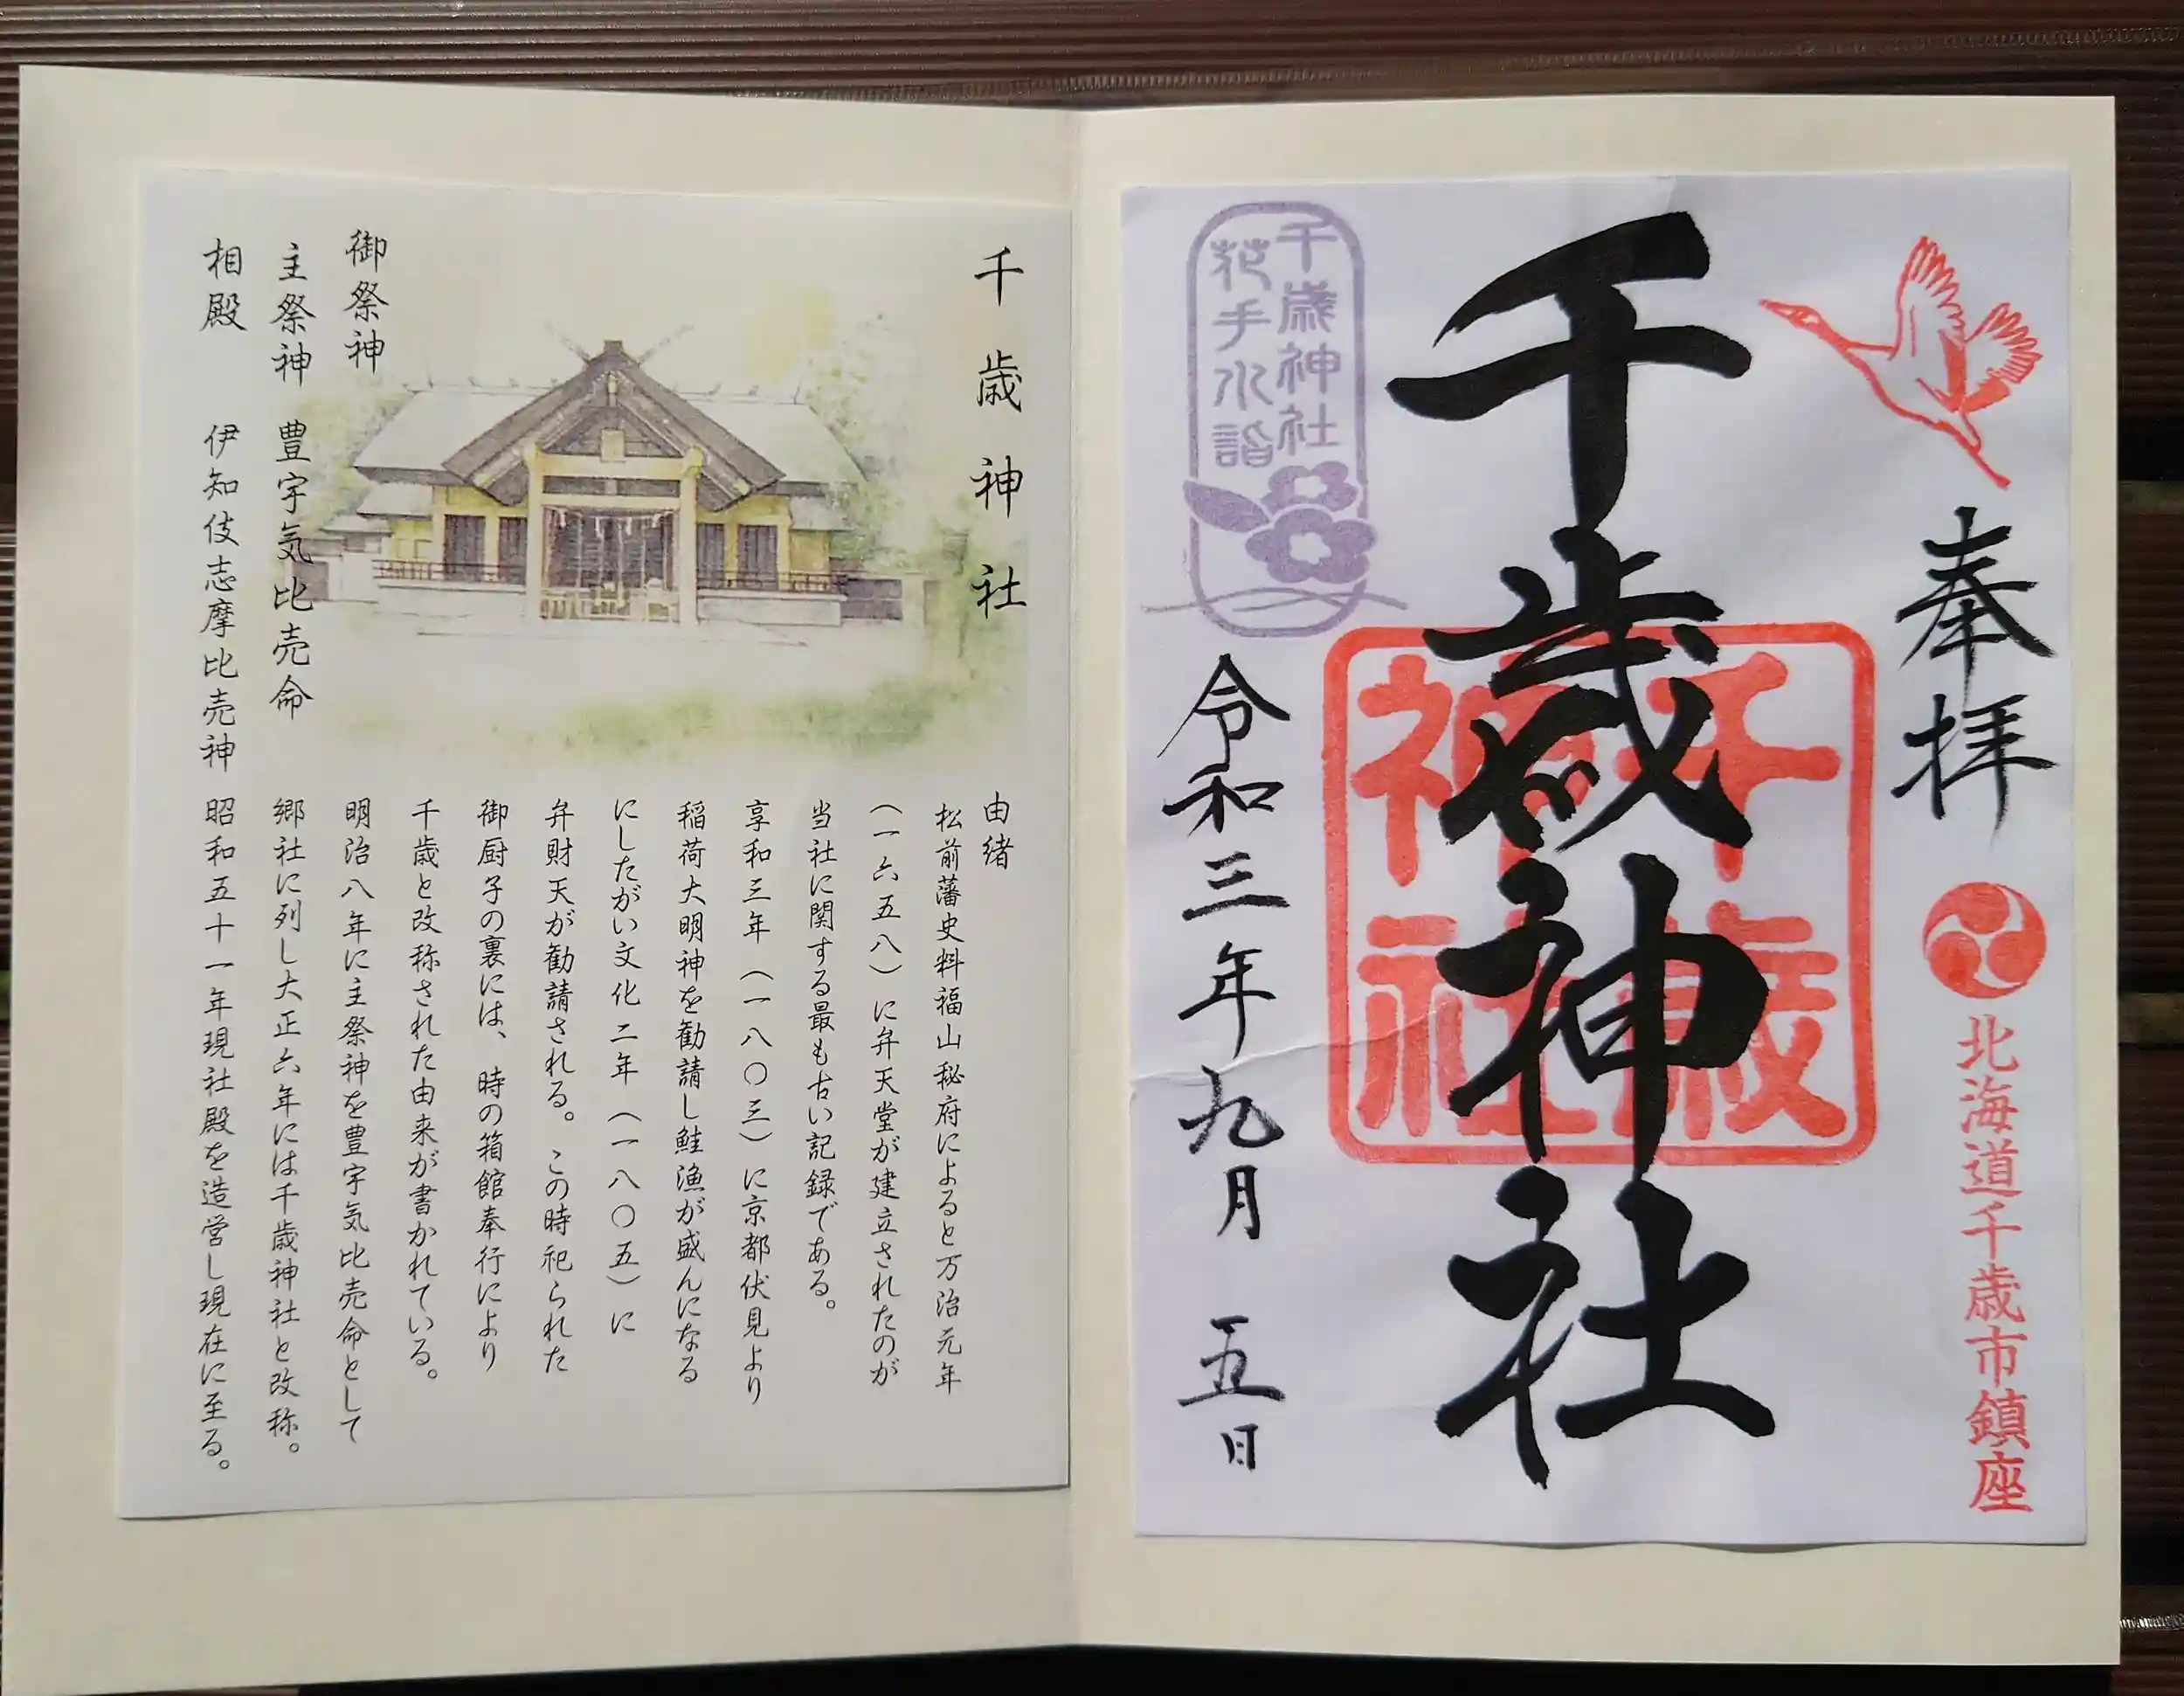 奉拝
北海道千歳市鎮座
千歳神社
千歳
神社
千歳神社
花手水詣
令和三年九月 五日
千歳神社
御祭神
主祭神 豊宇気比売命
相殿 伊知伎志摩比売神
由緒
松前藩史料福山秘府によると万治元年
(一六五八)に弁天堂が建立されたのが
当社に関する最も古い記録である。
享和三年(一八〇三)に京都伏見より
稲荷大明神を勧請し鮭漁が盛んになる
にしたがい文化二年(一八〇五)に
弁財天が勧請される。この時祀られた
御厨子の裏には、時の箱館奉行により
千歳と改称された由来が書かれている。
明治八年に主祭神を豊宇気比売命として
郷社に列し大正六年には千歳神社と改称。
昭和五十一年現社殿を造営し現在に至る。